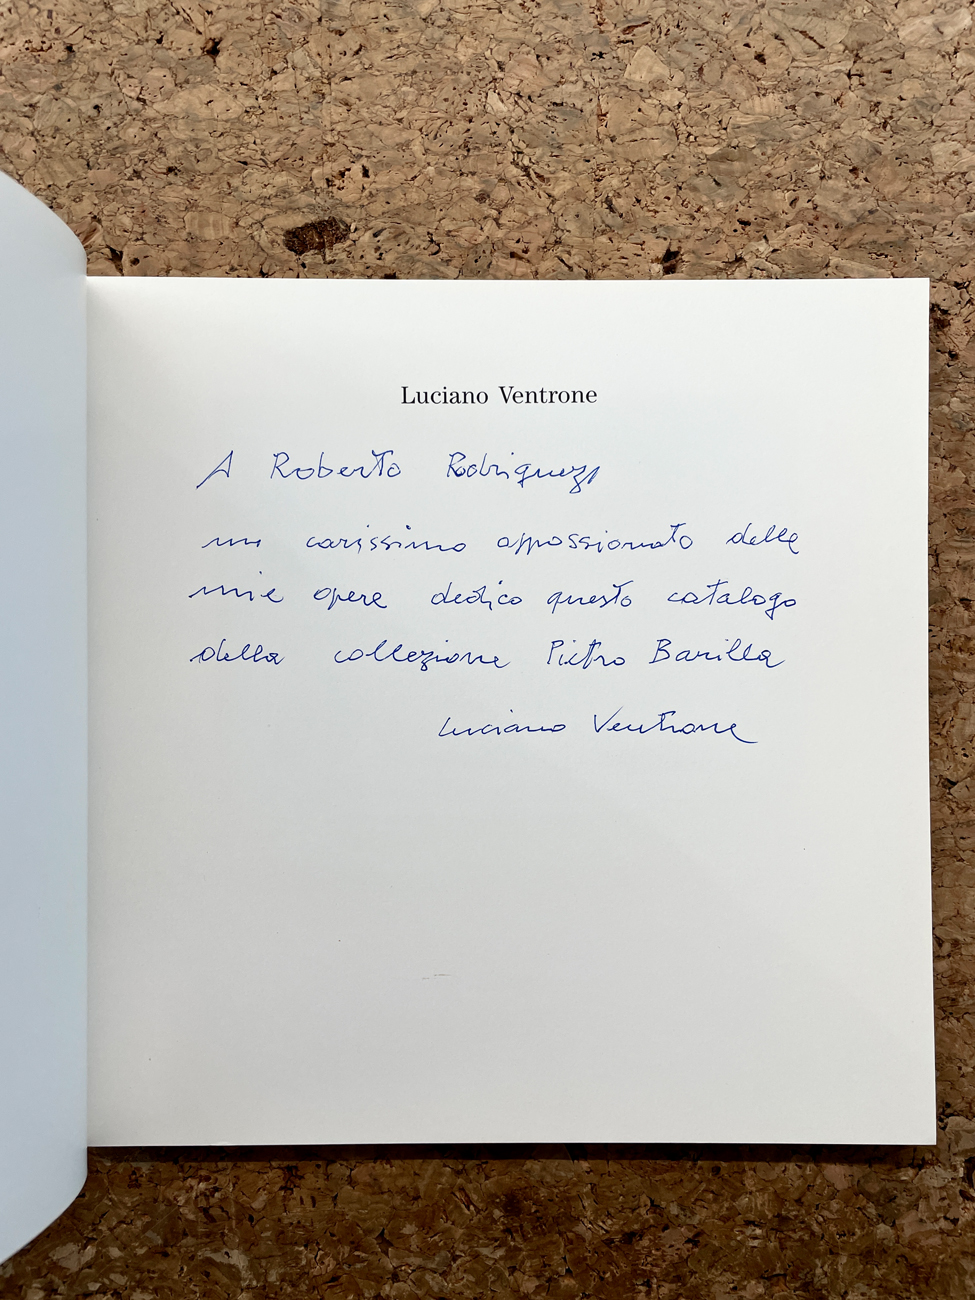 Luciano Ventrone
A Roberto Rodriguez
un carissimo appassionato delle
mie opere dedico questo catalogo
della collezione Pietro Barilla
Luciano Ventrone